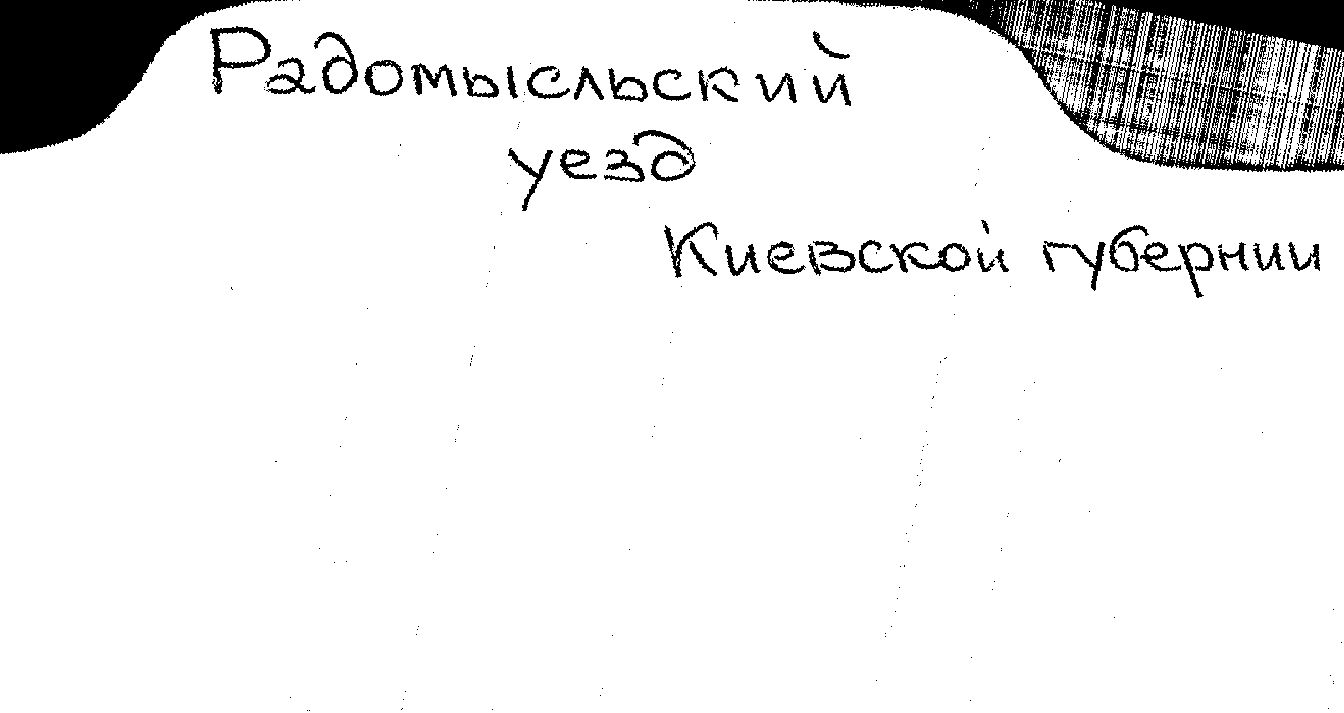 Радомысльский
уезд
Киевской губернии